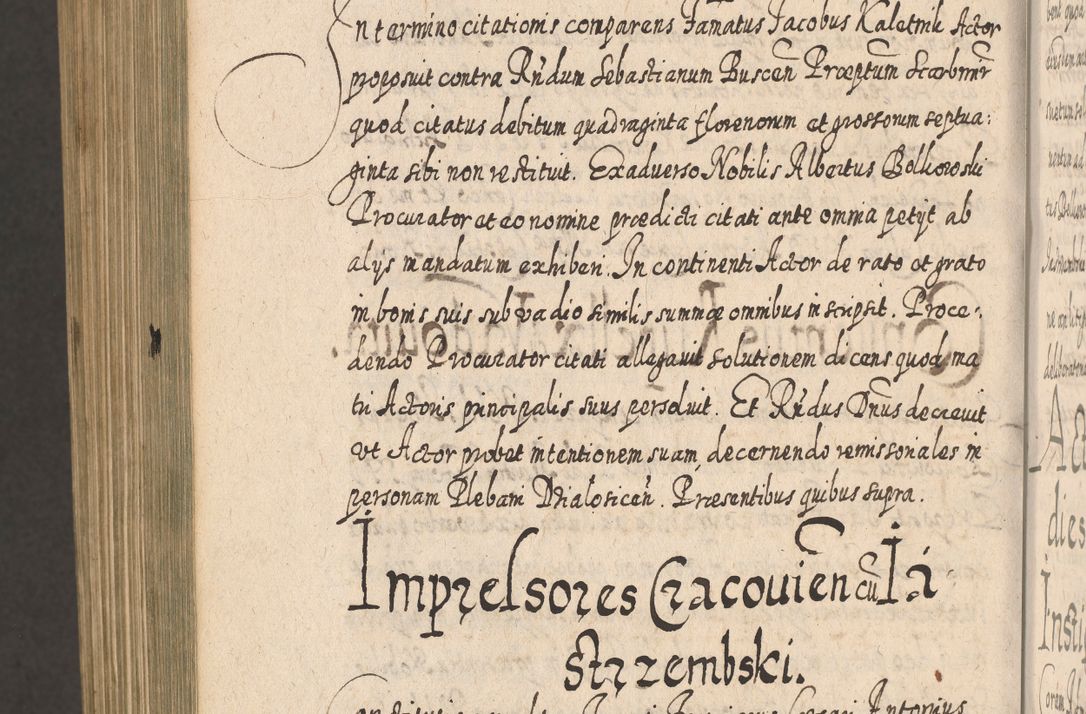 In termino citationis comparens Famatus Jacobus Kaletnik Actor
proposuit contra Rndum Sebastianum Buscen Præptum Scarbimir
quod citatus debitum quadraginta florenorum et grossorum septua:
ginta sibi non restituit. Exadverso Nobilis Albertus
Procurator et eo nomine prædicti citati ante omnia petijt ab
alijs mandatum exhiberi. In continenti Actor de rato et grato
in bonis suis sub vadio similis summæ omnibus inscripsit. Proce:
dendo Procurator citati allegavit solutionem dicens quod ma
tri Actoris principalis suus persolvit. Et Rndus Dnus decrevit
vt Actor probet intentionem suam, decernendo remissoriales in
personam Plebani Dzialosicen. Præsentibus quibus supra.
Impressores Cracouien cũ Ia
strzembski.
Antonius
dies
Insti